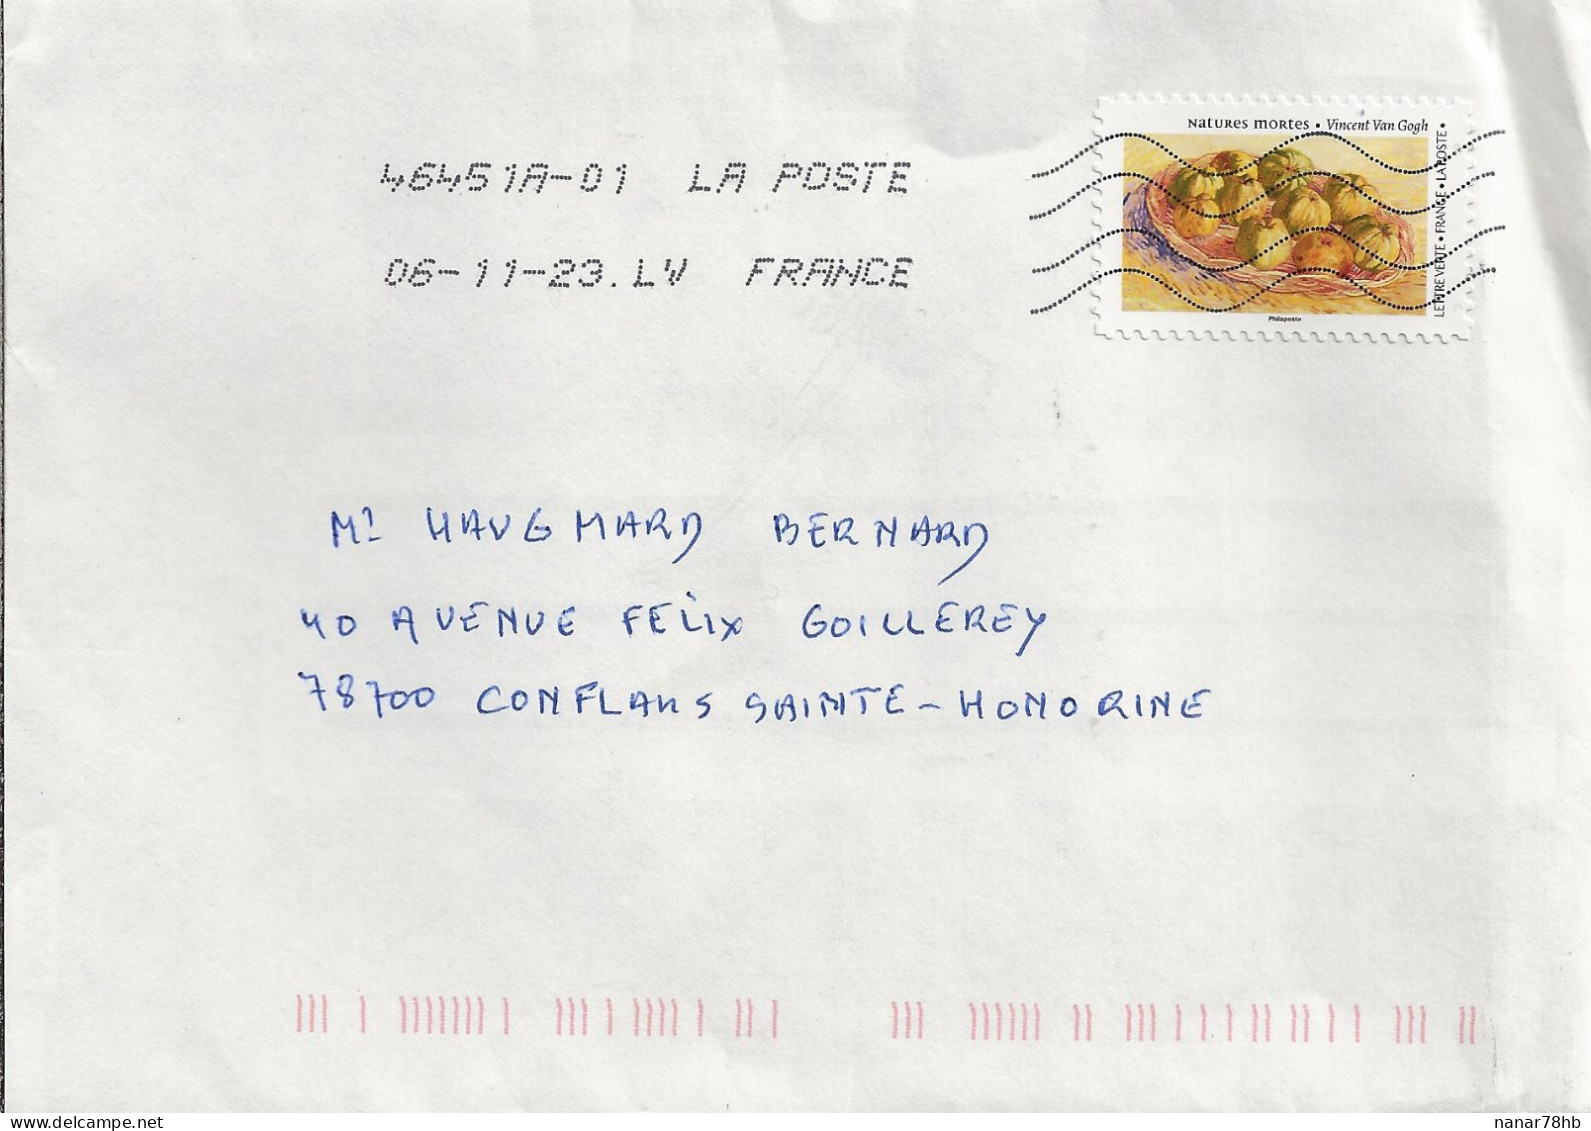 NATURES MORTES • Vincent Van Gogh
LETTRE VERTE • FRANCE • LA POSTE •
Philaposte
46451A-01 LA POSTE
06-11-23.LV FRANCE
Mr HAUGMARD BERNARD
40 AVENUE FELIX GOILLEREY
78700 CONFLANS SAINTE-HONORINE
www.delcampe.net
nanar78hb